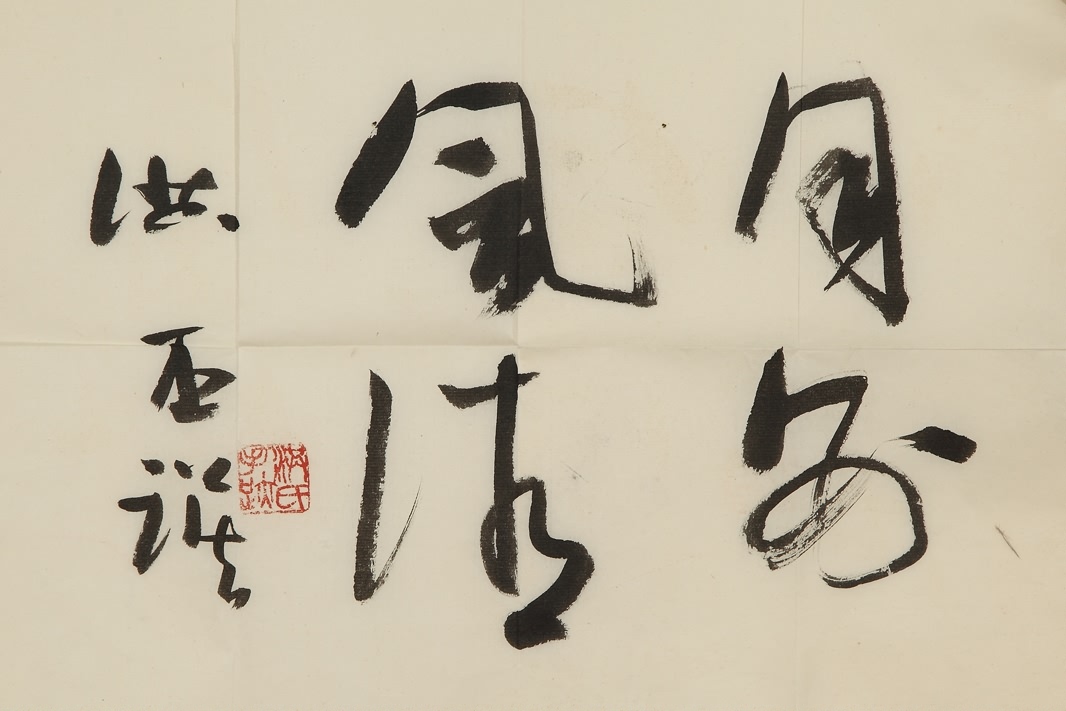 月
風清
洪丕謨